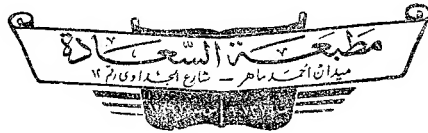 مطبعة السعادة
ميدان أحمد ماهر — شارع الجداوى رقم ١٢